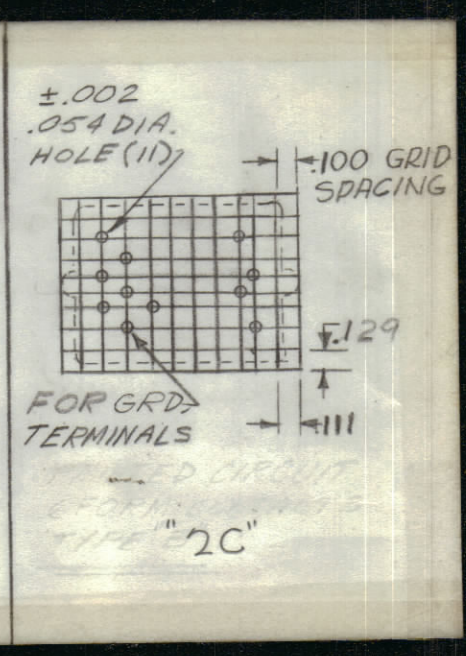 ±.002
.054 DIA.
HOLE (11)
.100 GRID
SPACING
.129
FOR GRD.
TERMINALS
.111
CIRCUIT
TYPE
"2C"